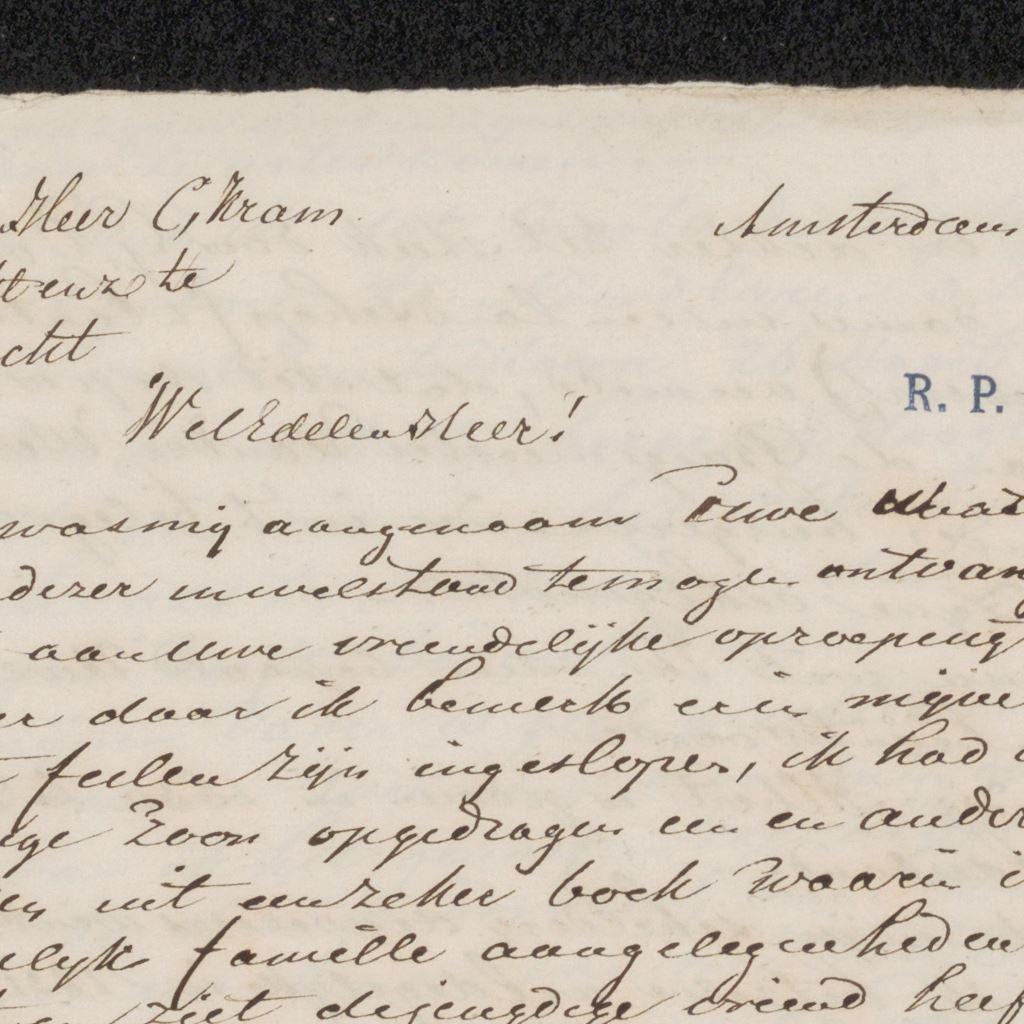 Heer C, Kram. Amsterdam
te
cht
R. P.
WelEdelen Heer!
was mij aangenaam Uuwe
dezer in welstand te mogen ontvan
aan Uwe vriendelijke oproeping
er daar ik bemerk er in mijne
feilen zijn ingeslopen, ik had
ge Zoon opgedragen een en ander
en uit een zeker boek waarin i
elyk famille aangelegenheden
ziet dejeugdige vriend heef